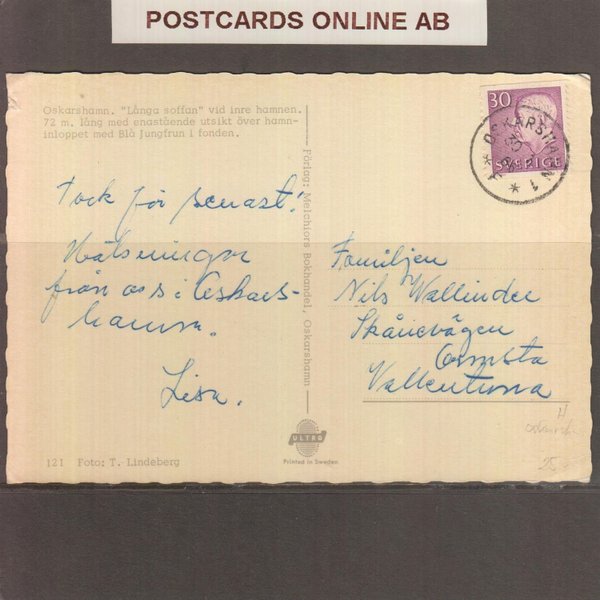 POSTCARDS ONLINE AB
Oskarshamn. "Långa soffan" vid inre hamnen.
72 m. lång med enastående utsikt över hamn-
inloppet med Blå Jungfrun i fonden.
30
SVERIGE
OSKARSHAMN 1
Tack för senast!
Hälsningar
från oss i Oskars-
hamn.
Lisa.
Förlag: Melchiors Bokhandel, Oskarshamn
Familjen
Nils Wallinder
Skånevägen
Ormsta
Vallentuna
H
25
ULTRA
Printed in Sweden
121 Foto: T. Lindeberg